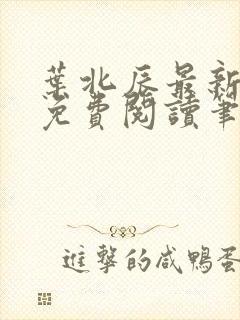 葉北辰最新
免費閱讀筆
進擊的咸鴨蛋